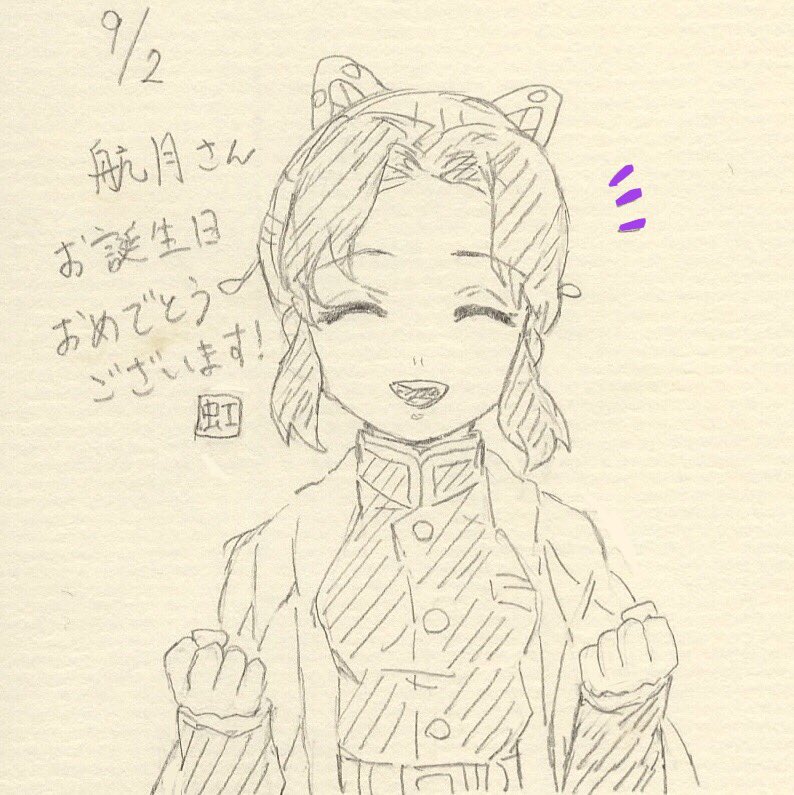 9/2
航月さん
お誕生日
おめでとう
ございます!
虹